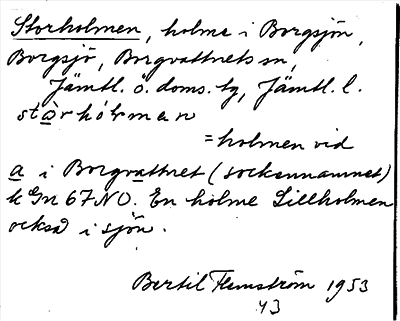 Storholmen, holme i Borgsjön,
Borgsjö, Borgvattnets sn,
Jämtl. ö. doms. tg, Jämtl. l.
=holmen vid
a i Borgvattnet (sockennamnet)
k Gn 67 NO. En holme Lillholmen
också i sjön.
Bertil Flemström 1953
43